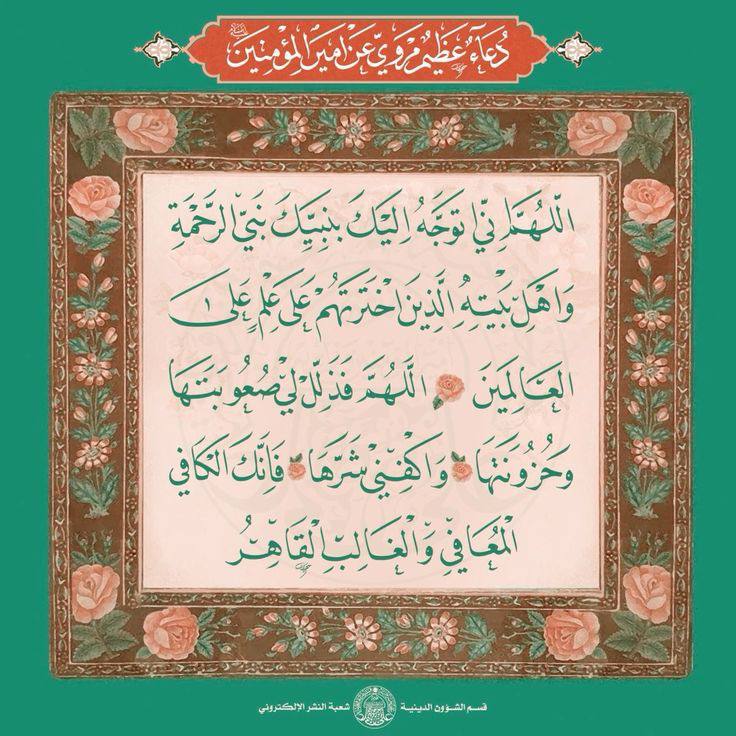 دُعَآءٌ عَظِيمٌ مَرْوِيٌّ عَنْ اَمِيرِ الْمُؤْمِنِينَ
اَللّٰهُمَّ اِنِّي اَتَوَجَّهُ اِلَيْكَ بِنَبِيِّكَ نَبِيِّ الرَّحْمَةِ
وَاَهْلِ بَيْتِهِ الَّذِينَ اخْتَرْتَهُمْ عَلَى عِلْمٍ عَلَى
الْعَالَمِينَ اَللّٰهُمَّ فَذَلِّلْ لِيْ صُعُوبَتَهَا
وَحُزُونَتَهَا وَاكْفِنِيْ شَرَّهَا فَاِنَّكَ الْكَافِي
الْمُعَافِي وَالْغَالِبُ الْقَاهِرُ
قسم الشؤون الدينية شعبة النشر الإلكتروني